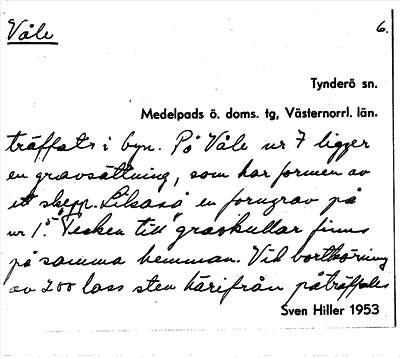 Våle
6.
Tynderö sn.
Medelpads ö. doms. tg, Västernorrl. län.
träffats i byn. På Våle nr 7 ligger
en gravsättning, som har formen av
ett skepp. Likaså en forngrav på
nr 1. 5 Tecken till gravkullar finns
på samma hemman. Vid bortköring
av 200 lass sten härifrån påträffades
Sven Hiller 1953